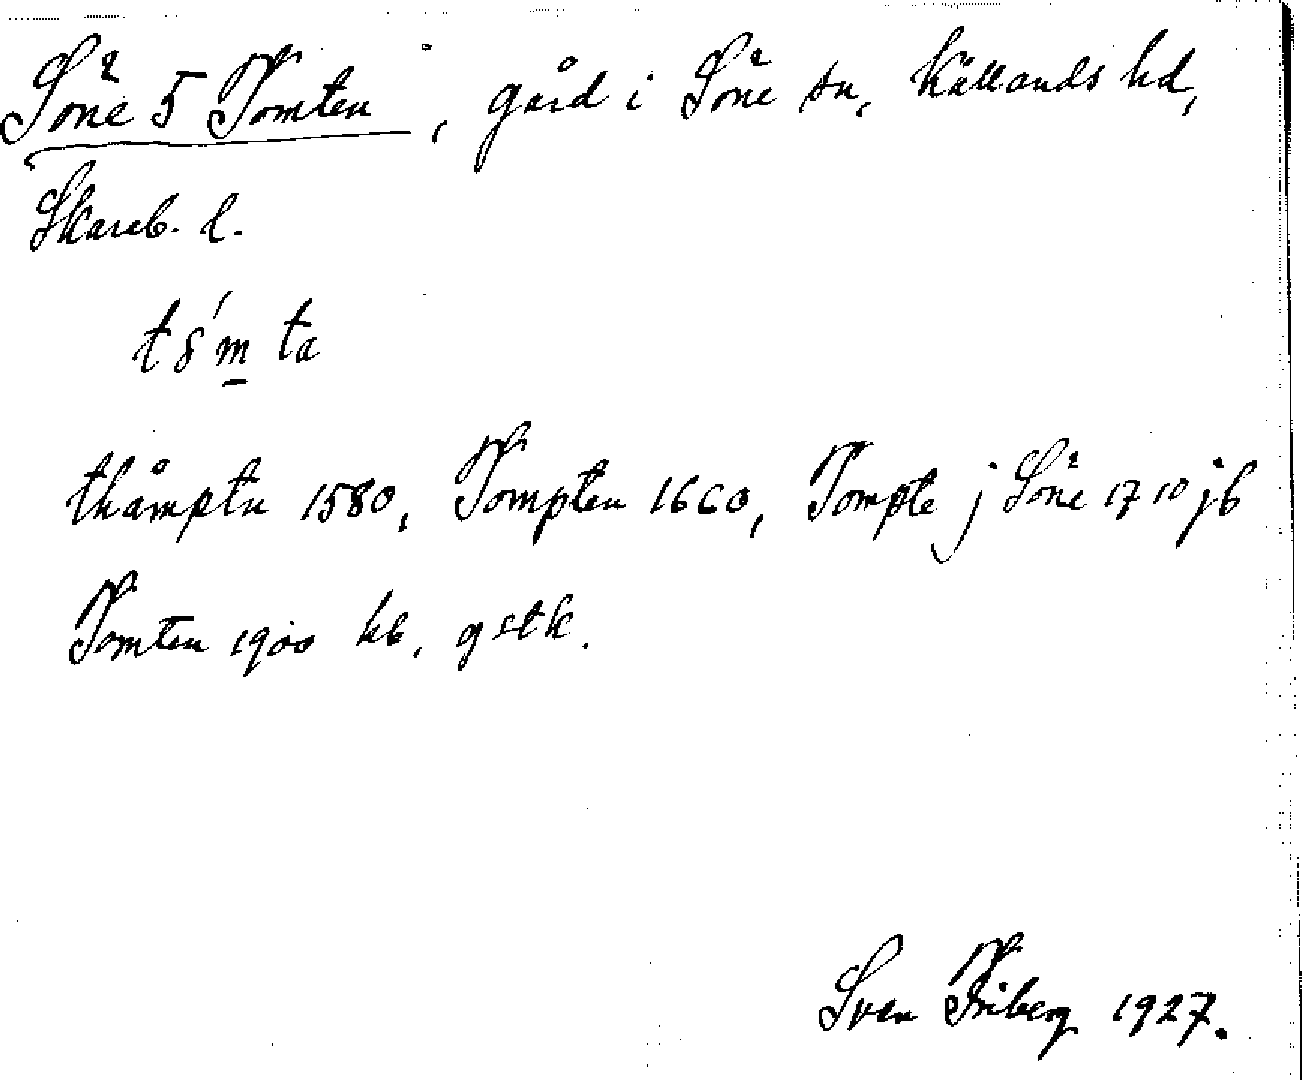 Söne 5 Tomten, gård i Söne sn, Kållands hd,
Skarab. l.
tȣ́m̲ ta
thåmptn 1580, Tompten 1660, Tompte j Söne 1710 jb
Tomten 1900 kb, gstk.
Sven Friberg 1927.